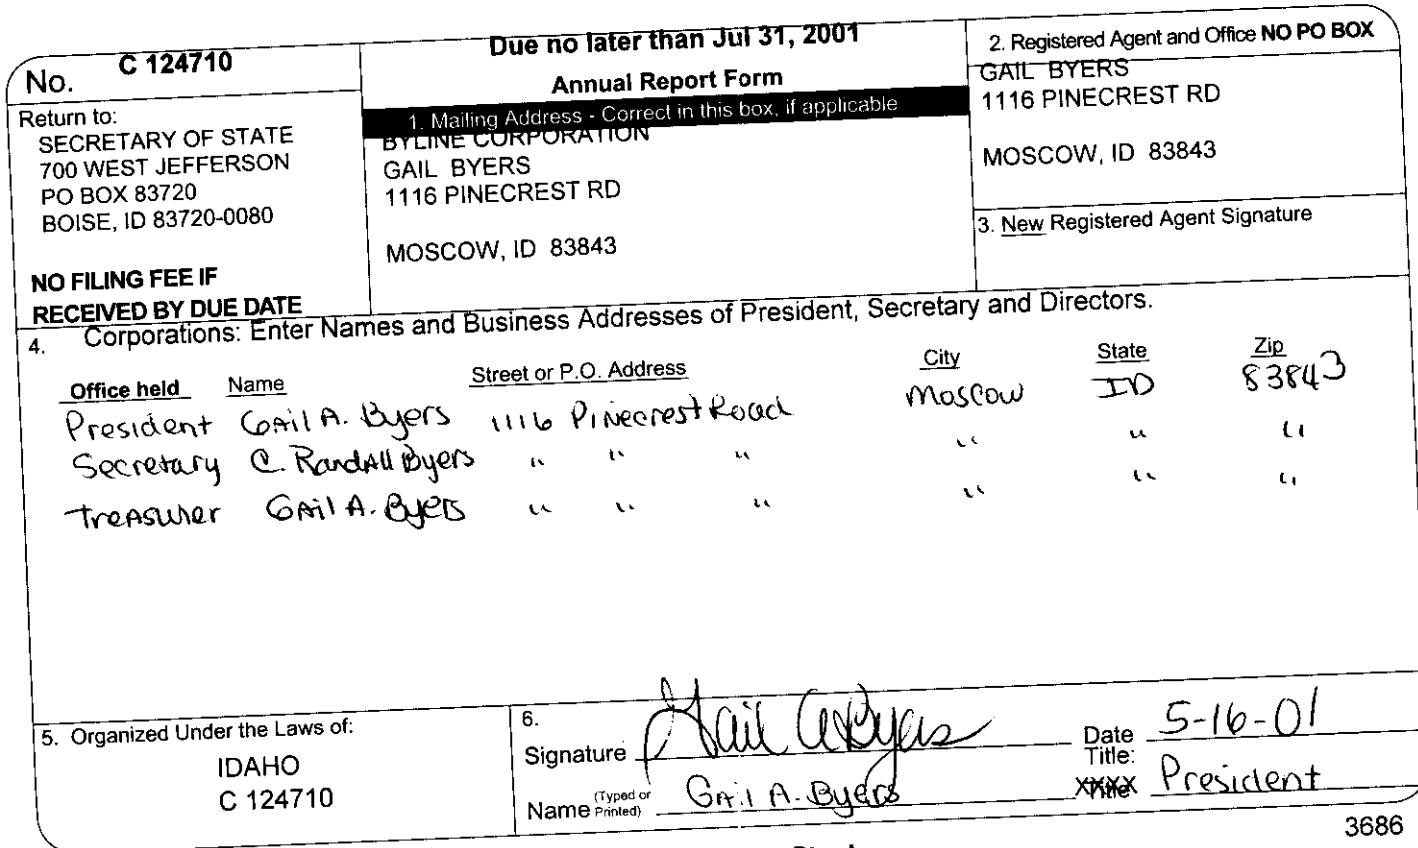 No. C 124710
Return to:
SECRETARY OF STATE
700 WEST JEFFERSON
PO BOX 83720
BOISE, ID 83720-0080
NO FILING FEE IF
RECEIVED BY DUE DATE
Due no later than Jul 31, 2001
Annual Report Form
1. Mailing Address - Correct in this box, if applicable
BYLINE CORPORATION
GAIL BYERS
1116 PINECREST RD
MOSCOW, ID 83843
2. Registered Agent and Office NO PO BOX
GAIL BYERS
1116 PINECREST RD
MOSCOW, ID 83843
3. New Registered Agent Signature
4. Corporations: Enter Names and Business Addresses of President, Secretary and Directors.
Office held Name Street or P.O. Address City State Zip
President Gail A. Byers 1116 Pinecrest Road Moscow ID 83843
Secretary C. Randall Byers " " " " " "
Treasurer Gail A. Byers " " " " " "
5. Organized Under the Laws of:
IDAHO
C 124710
6.
Signature Gail A Byers Date 5-16-01
Title:
Name (Typed or Printed) Gail A. Byers President
3686